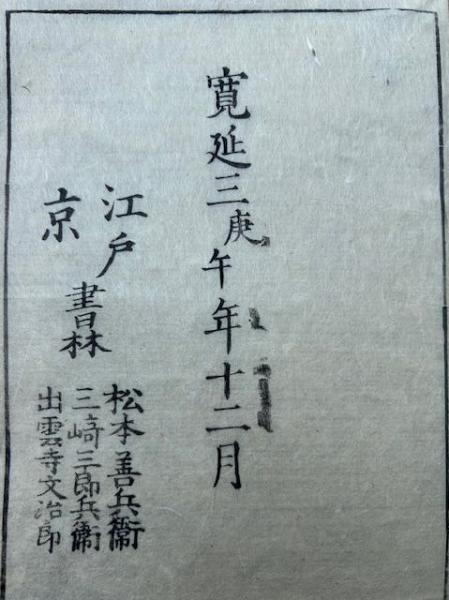 寛延三庚午年十二月
江戸
京
書林
松本善兵衛
三﨑三郎兵衛
出雲寺文治郎